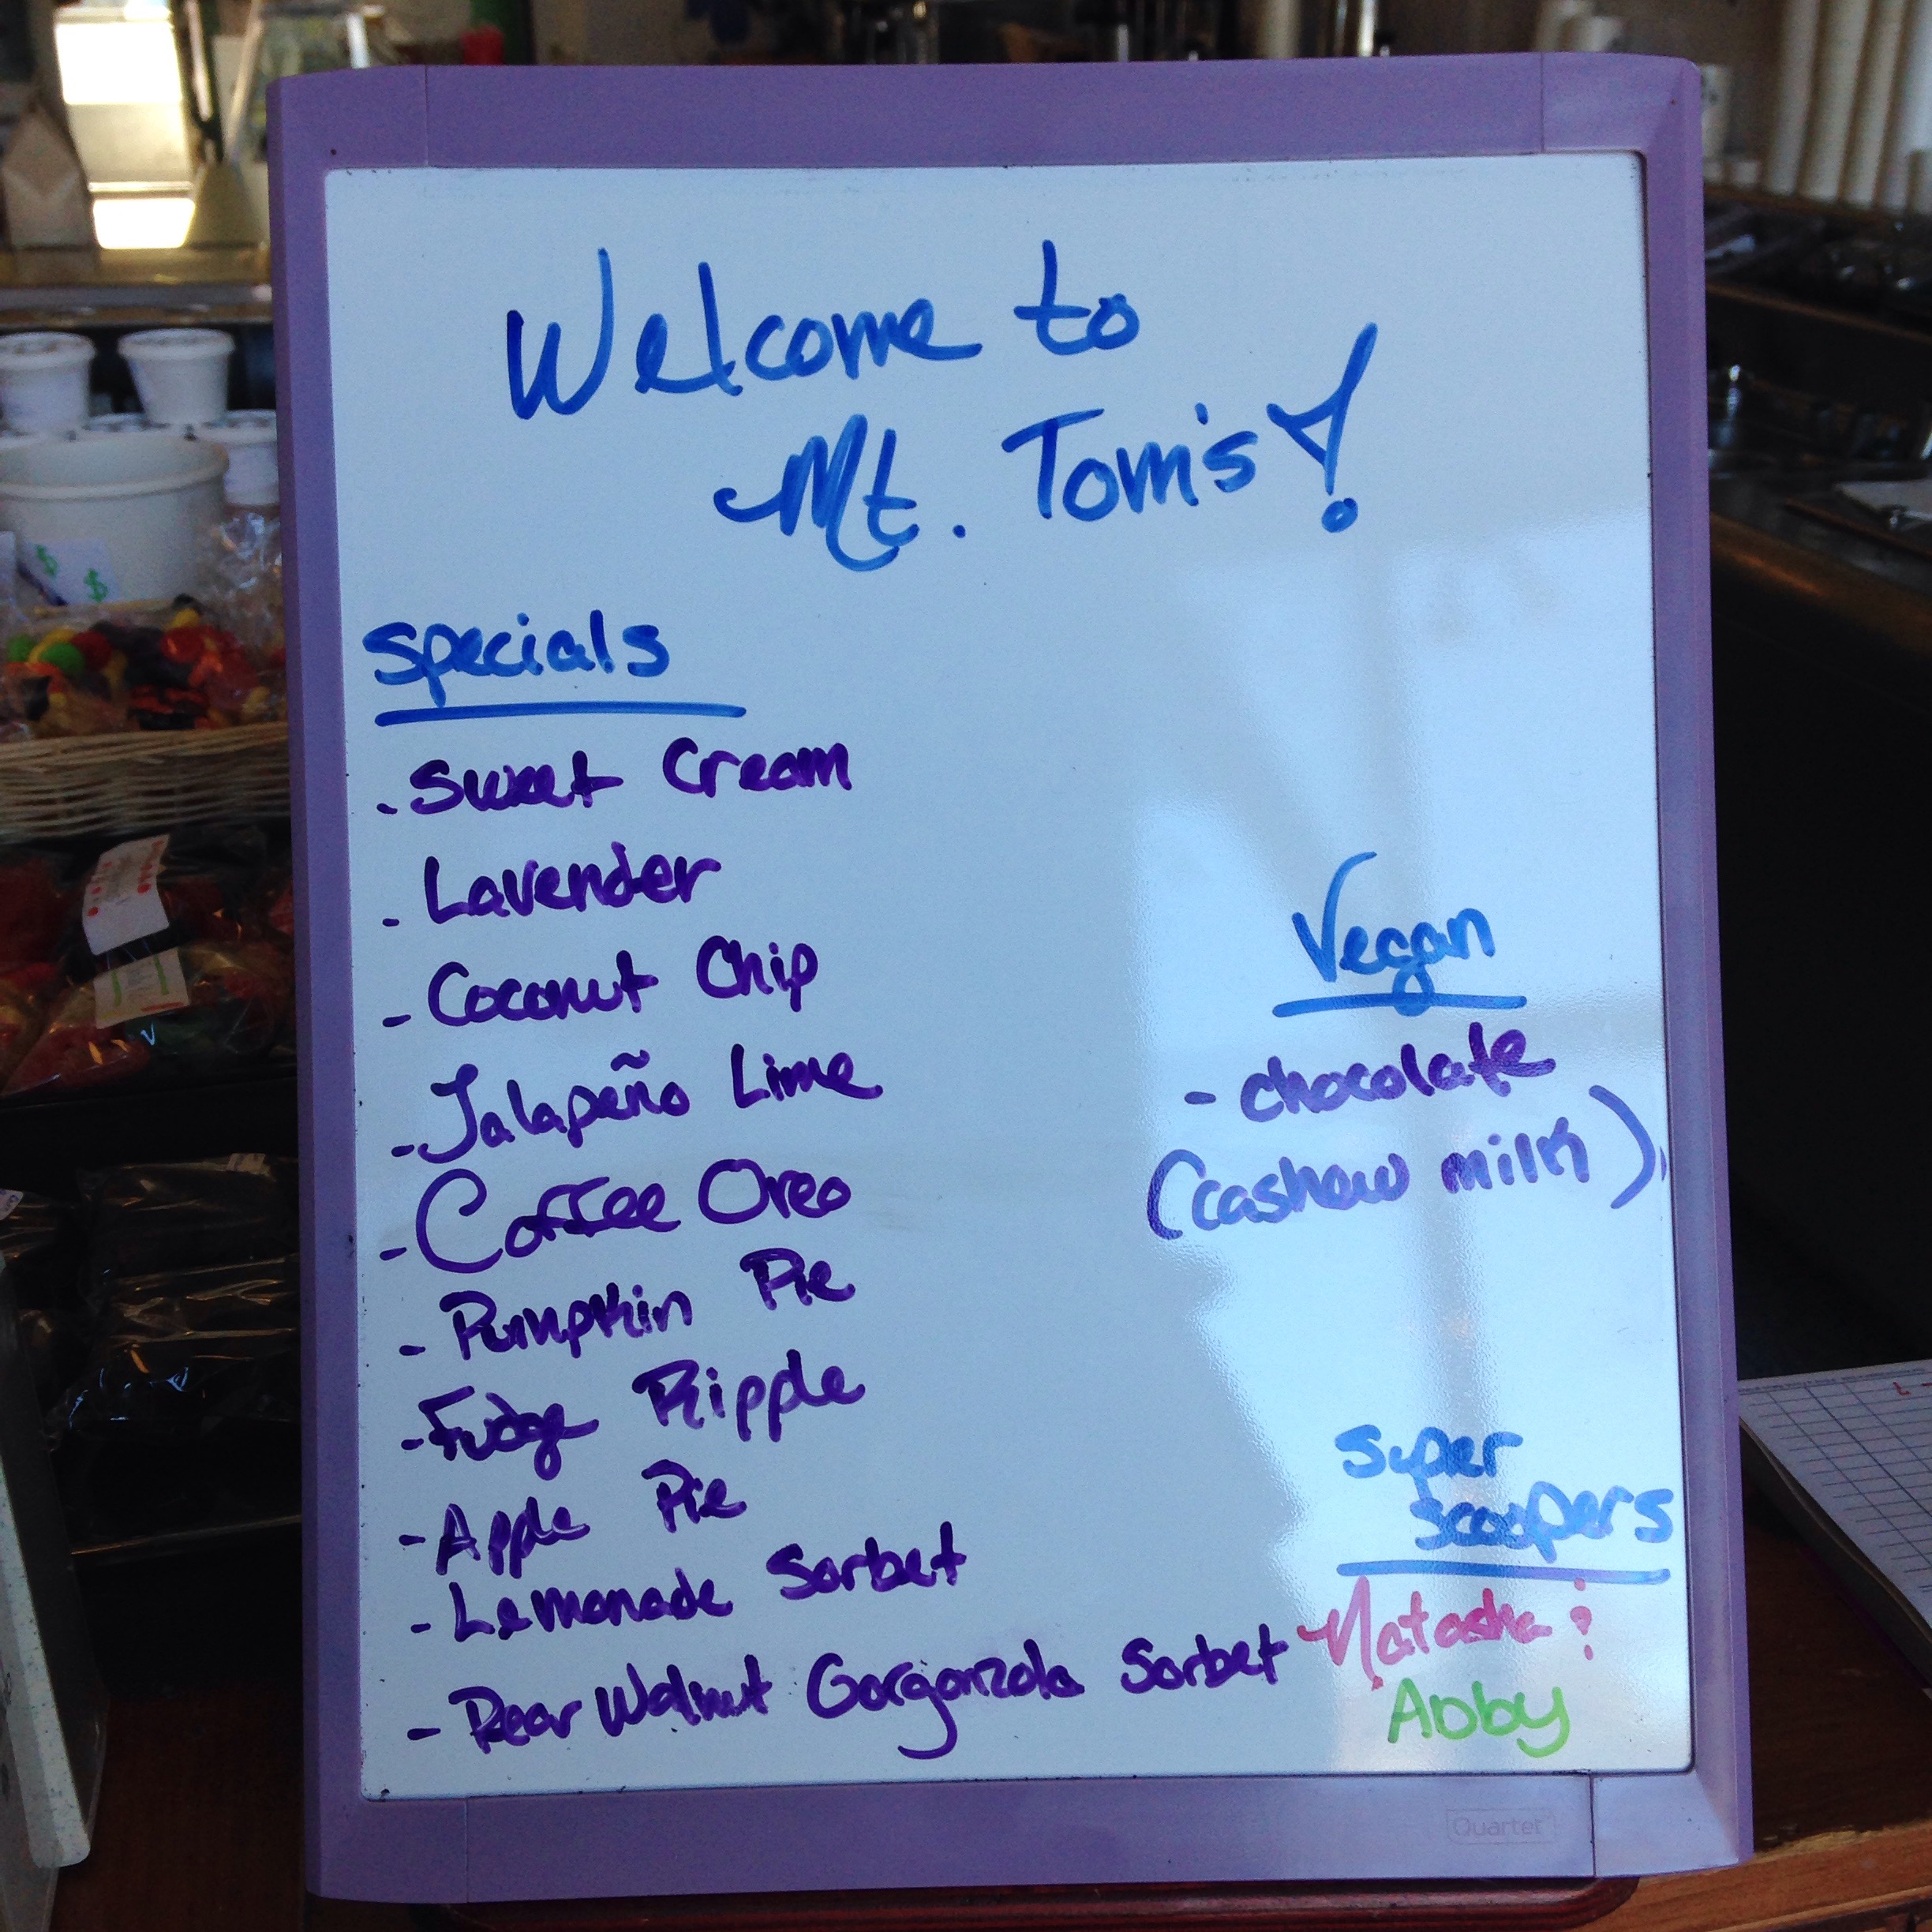 Welcome to
Mt. Tom's!
Specials
- Sweet Cream
- Lavender
- Coconut Chip
- Jalapeño Lime
- Coffee Oreo
- Pumpkin Pie
- Fudge Ripple
- Apple Pie
- Lemonade Sorbet
- Pear Walnut Gorgonzola Sorbet
Vegan
- chocolate
(cashew milk)
Super
Scoopers
Natasha &
Abby
Quartet
$ $